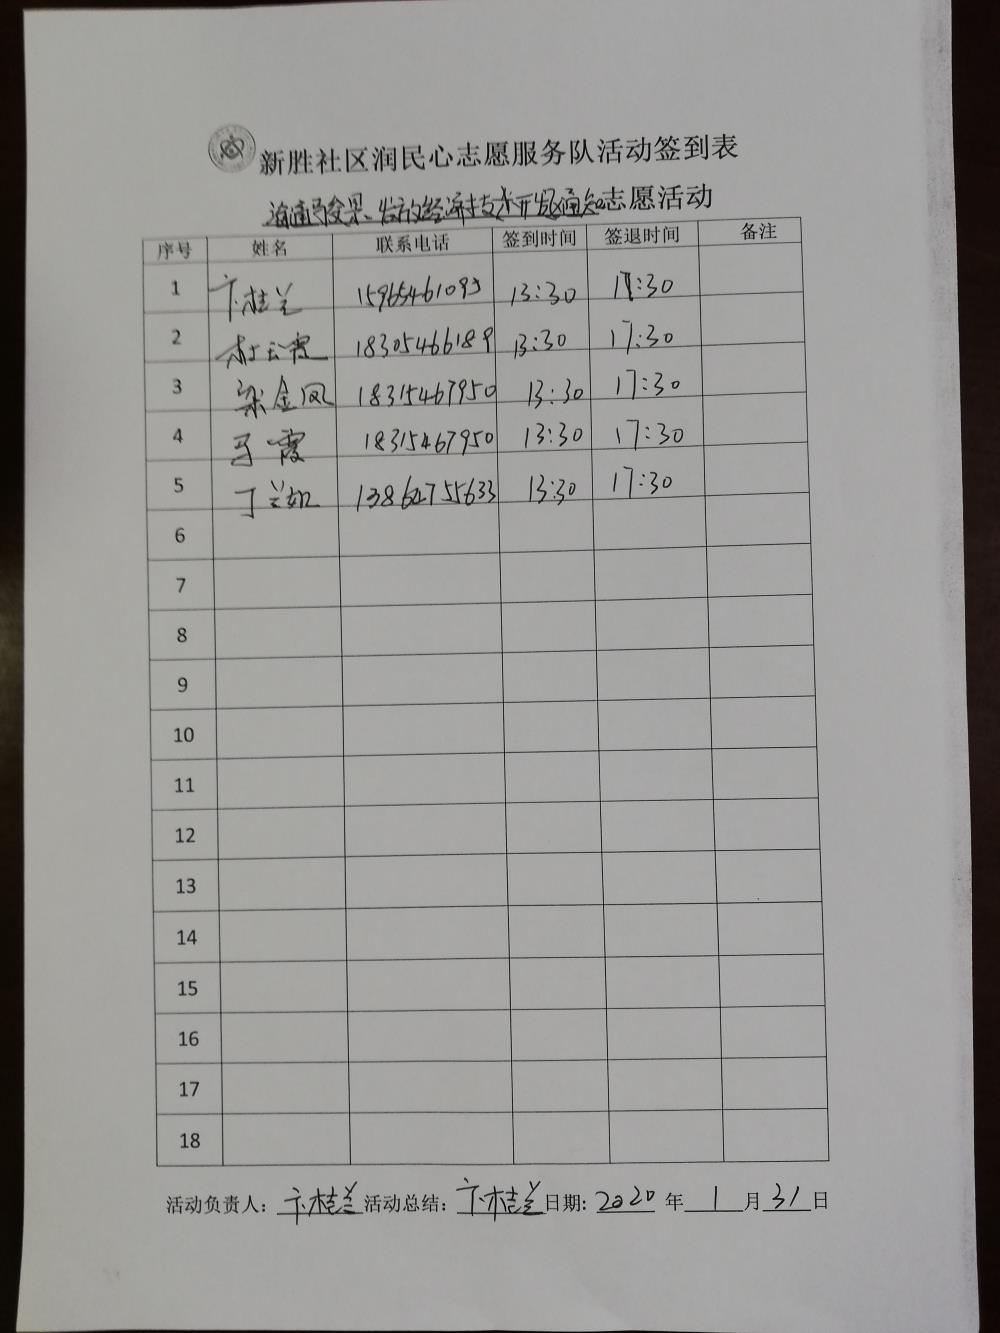 新胜社区润民心志愿服务队活动签到表
发放经济技术开发区通知志愿活动
序号 姓名 联系电话 签到时间 签退时间 备注
1 卞桂兰 15965461093 13:30 17:30
2 杜云霞 18305466189 13:30 17:30
3 梁金凤 18315467950 13:30 17:30
4 马霞 18315467950 13:30 17:30
5 丁兰如 13862755633 13:30 17:30
6
7
8
9
10
11
12
13
14
15
16
17
18
活动负责人: 卞桂兰 活动总结: 卞桂兰 日期: 2020 年 1 月 31 日